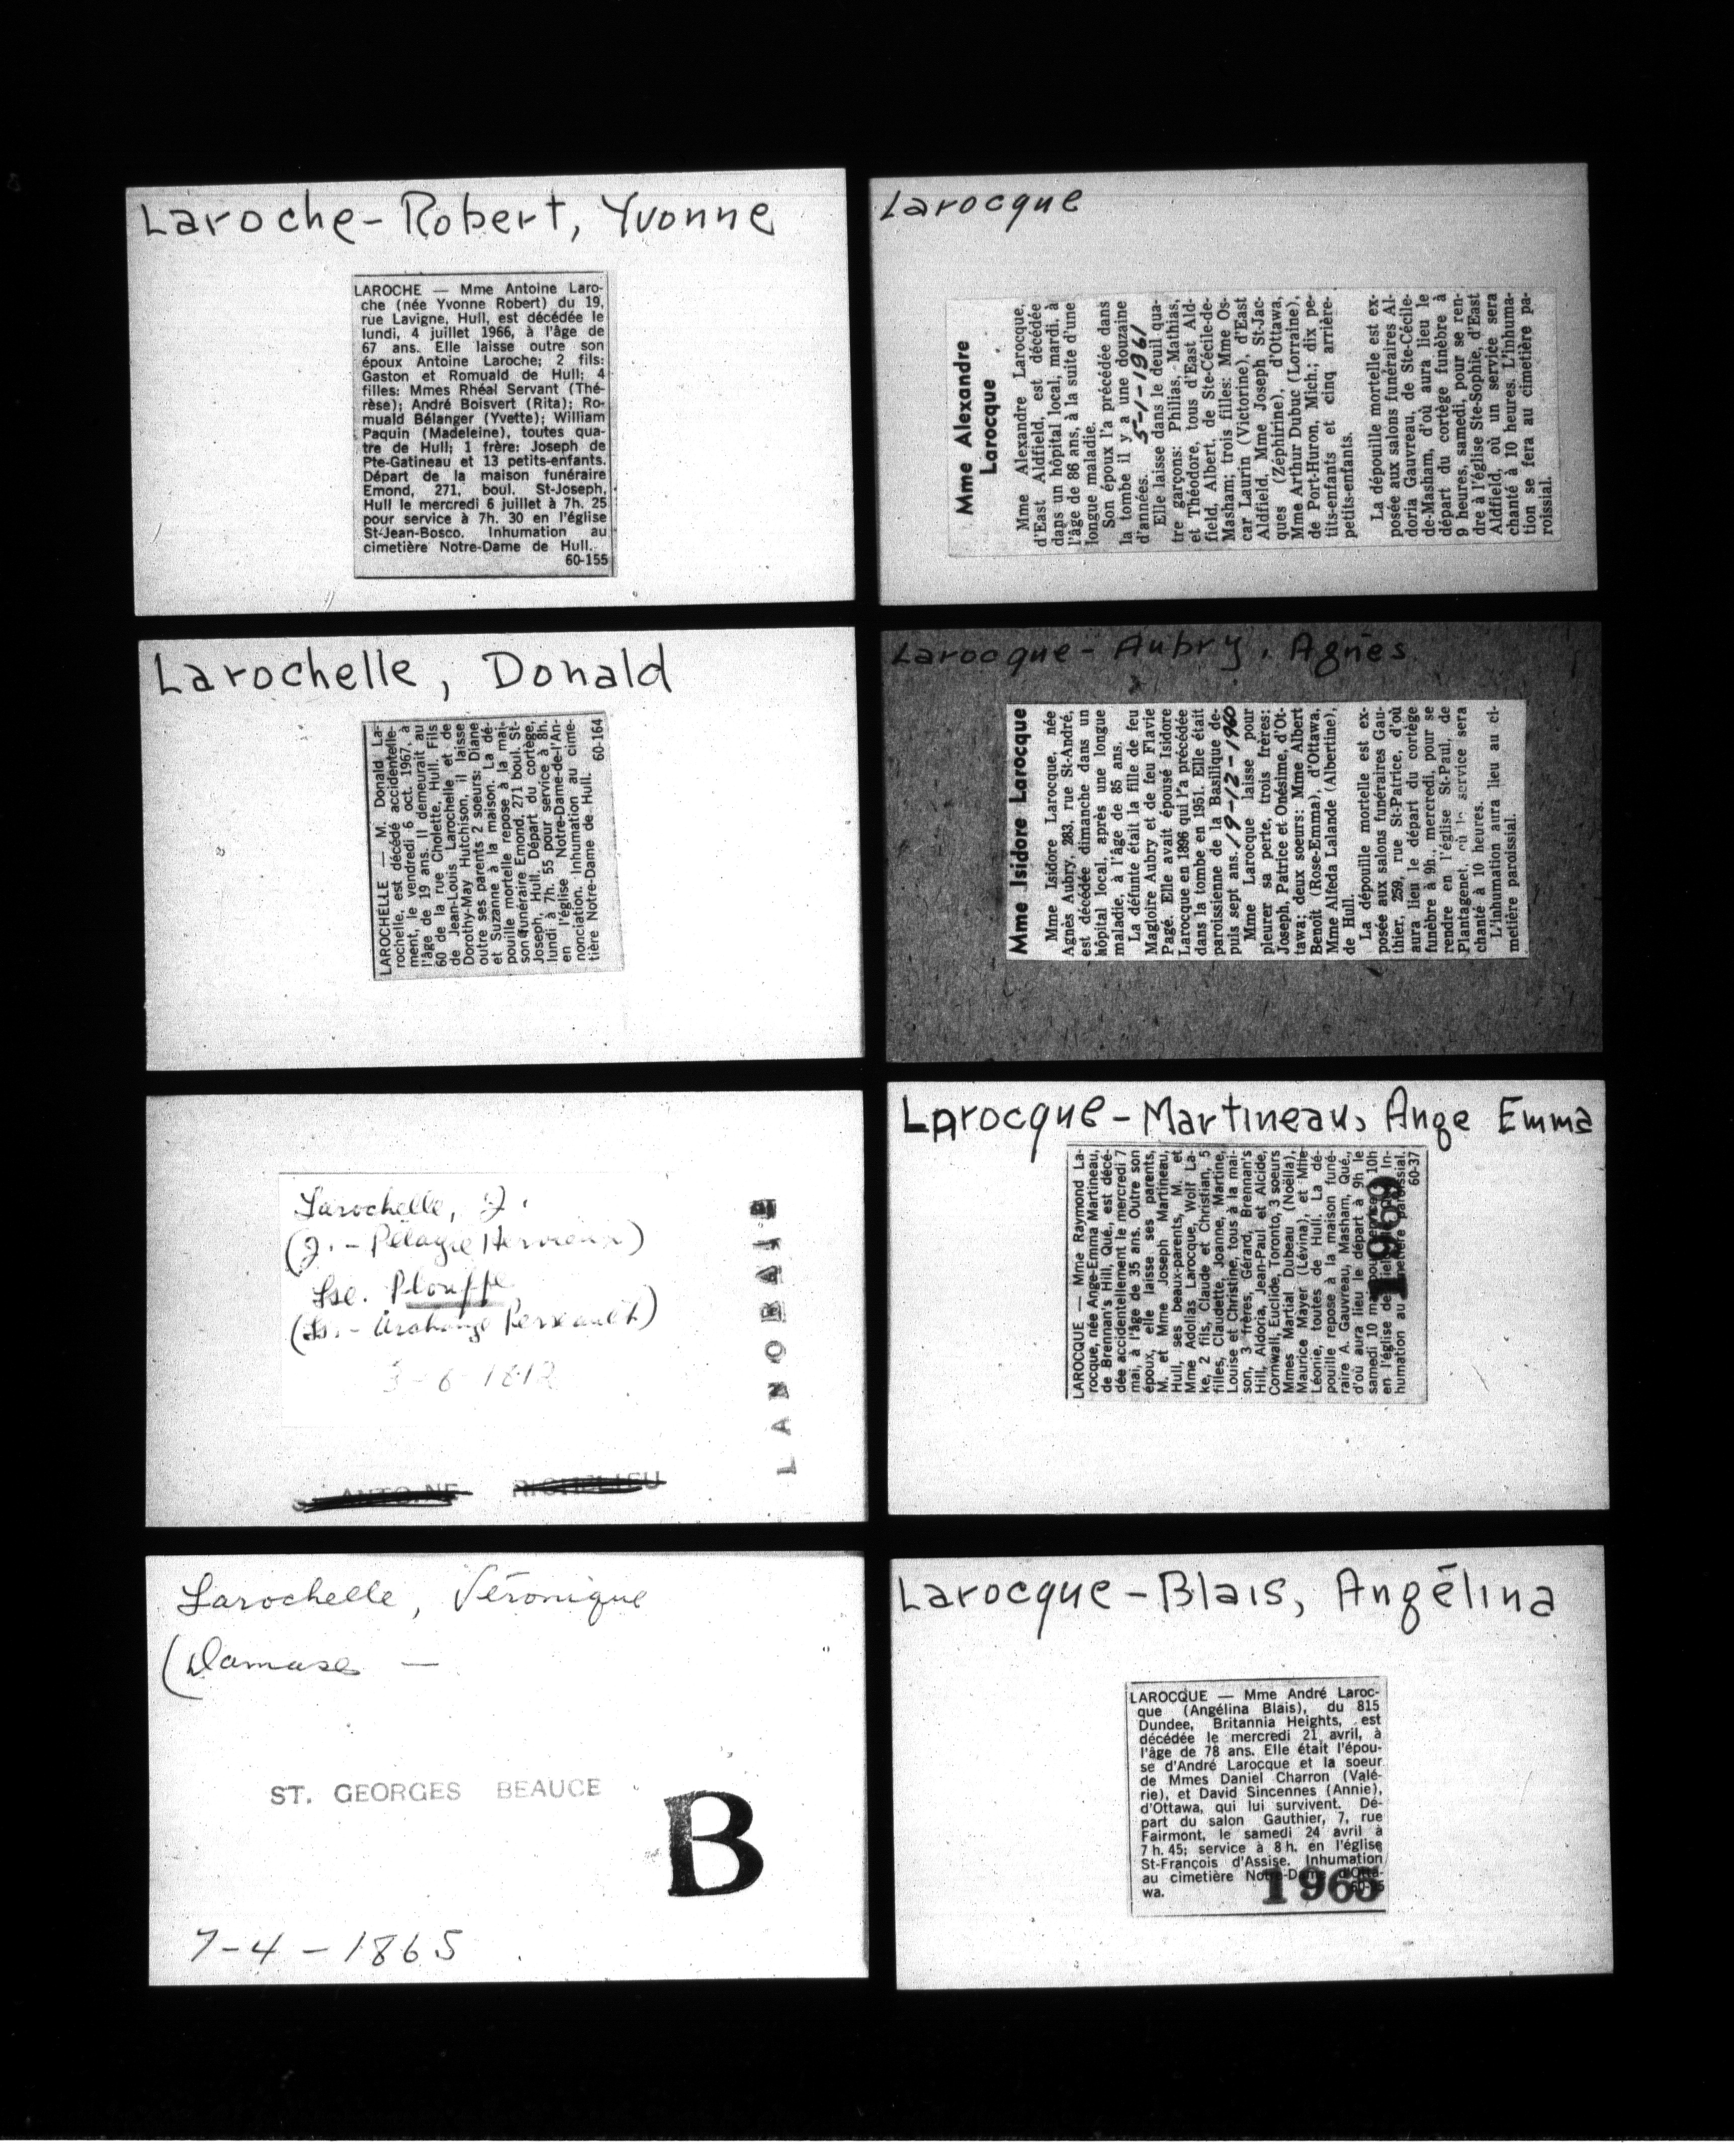 Laroche-Robert, Yvonne
LAROCHE — Mme Antoine Laro-
che (née Yvonne Robert) du 19,
rue Lavigne, Hull, est décédée le
lundi, 4 juillet 1966, à l'âge de
67 ans. Elle laisse outre son
époux Antoine Laroche; 2 fils:
Gaston et Romuald de Hull; 4
filles: Mmes Rhéal Servant (Thé-
rèse); André Boisvert (Rita); Ro-
muald Bélanger (Yvette); William
Paquin (Madeleine), toutes qua-
tre de Hull; 1 frère: Joseph de
Pte-Gatineau et 13 petits-enfants.
Départ de la maison funéraire
Emond, 271, boul. St-Joseph,
Hull le mercredi 6 juillet à 7h. 25
pour service à 7h. 30 en l'église
St-Jean-Bosco. Inhumation au
cimetière Notre-Dame de Hull.
60-155
Larochelle, Donald
LAROCHELLE — M. Donald La-
rochelle, est décédé accidentelle-
ment, le vendredi 6 oct. 1967, à
l'âge de 19 ans. Il demeurait au
60 de la rue Cholette, Hull. Fils
de Jean-Louis Larochelle et de
Dorothy-May Hutchison, il laisse
outre ses parents 2 soeurs: Diane
et Suzanne à la maison. La dé-
pouille mortelle repose à la mai-
son funéraire Emond, 271 boul. St-
Joseph, Hull. Départ du cortège,
lundi à 7h. 55 pour service à 8h.
en l'église Notre-Dame-de-l'An-
nonciation. Inhumation au cime-
tière Notre-Dame de Hull.
60-164
Larochelle, J.
(J. - Pélagie Hervieux)
Lse. Plouffe
(Ls. - Archange Perreault)
3-6-1812
LANORAIE
ST ANTOINE RICHELIEU
Larochelle, Véronique
(Damase — "
ST. GEORGES BEAUCE
B
7-4-1865
Larocque
Mme Alexandre
Larocque
Mme Alexandre Larocque,
d'East Aldfield, est décédée
dans un hôpital local, mardi, à
l'âge de 86 ans, à la suite d'une
longue maladie.
Son époux l'a précédée dans
la tombe il y a une douzaine
d'années. 5-1-1961
Elle laisse dans le deuil qua-
tre garçons: Philias, Mathias,
et Théodore, tous d'East Ald-
field, Albert, de Ste-Cécile-de-
Masham; trois filles: Mme Os-
car Laurin (Victorine), d'East
Aldfield, Mme Joseph St-Jac-
ques (Zéphirine), d'Ottawa,
Mme Arthur Dubuc (Lorraine),
de Port-Huron, Mich.; dix pe-
tits-enfants et cinq arrière-
petits-enfants.
La dépouille mortelle est ex-
posée aux salons funéraires Al-
doria Gauvreau, de Ste-Cécile-
de-Masham, d'où aura lieu le
départ du cortège funèbre à
9 heures, samedi, pour se ren-
dre à l'église Ste-Sophie, d'East
Aldfield, où un service sera
chanté à 10 heures. L'inhuma-
tion se fera au cimetière pa-
roissial.
Larocque-Aubry, Agnès
Mme Isidore Larocque
Mme Isidore Larocque, née
Agnès Aubry, 283, rue St-André,
est décédée dimanche dans un
hôpital local, après une longue
maladie, à l'âge de 85 ans.
La défunte était la fille de feu
Magloire Aubry et de feu Flavie
Pagé. Elle avait épousé Isidore
Larocque en 1896 qui l'a précédée
dans la tombe en 1951. Elle était
paroissienne de la Basilique de-
puis sept ans. 19-12-1960
Mme Larocque laisse pour
pleurer sa perte, trois frères:
Joseph, Patrice et Onésime, d'Ot-
tawa; deux soeurs: Mme Albert
Benoît (Rose-Emma), d'Ottawa,
Mme Alfeda Lalande (Albertine),
de Hull.
La dépouille mortelle est ex-
posée aux salons funéraires Gau-
thier, 259, rue St-Patrice, d'où
aura lieu le départ du cortège
funèbre à 9h. mercredi, pour se
rendre en l'église St-Paul, de
Plantagenet, où le service sera
chanté à 10 heures.
L'inhumation aura lieu au ci-
metière paroissial.
Larocque-Martineau, Ange Emma
LAROCQUE — Mme Raymond La-
rocque, née Ange-Emma Martineau,
de Brennan's Hill, Qué., est décé-
dée accidentellement le mercredi 7
mai, à l'âge de 35 ans. Outre son
époux, elle laisse ses parents,
M. et Mme Joseph Martineau,
Hull, ses beaux-parents, M. et
Mme Adollas Larocque, Wolf La-
ke, 2 fils, Claude et Christian, 5
filles, Claudette, Joanne, Martine,
Louise et Christine, tous à la mai-
son, 3 frères, Gérard, Brennan's
Hill, Aldoria, Jean-Paul et Alcide,
Cornwall, Euclide, Toronto, 3 soeurs
Mmes Martial Dubeau (Noëlla),
Maurice Mayer (Lévina), et Mlle
Léonie, toutes de Hull. La dé-
pouille repose à la maison funé-
raire A. Gauvreau, Masham, Qué.,
d'où aura lieu le départ à 9h le
samedi 10 mai pour service à 10h
en l'église de In-
humation au cimetière paroissial.
60-37
1969
Larocque-Blais, Angélina
LAROCQUE — Mme André Laroc-
que (Angélina Blais), du 815
Dundee, Britannia Heights, est
décédée le mercredi 21 avril, à
l'âge de 78 ans. Elle était l'épou-
se d'André Larocque et la soeur
de Mmes Daniel Charron (Valé-
rie), et David Sincennes (Annie),
d'Ottawa, qui lui survivent. Dé-
part du salon Gauthier, 7, rue
Fairmont, le samedi 24 avril à
7 h. 45; service à 8 h. en l'église
St-François d'Assise. Inhumation
au cimetière Notre-Dame d'Otta-
wa.
1965